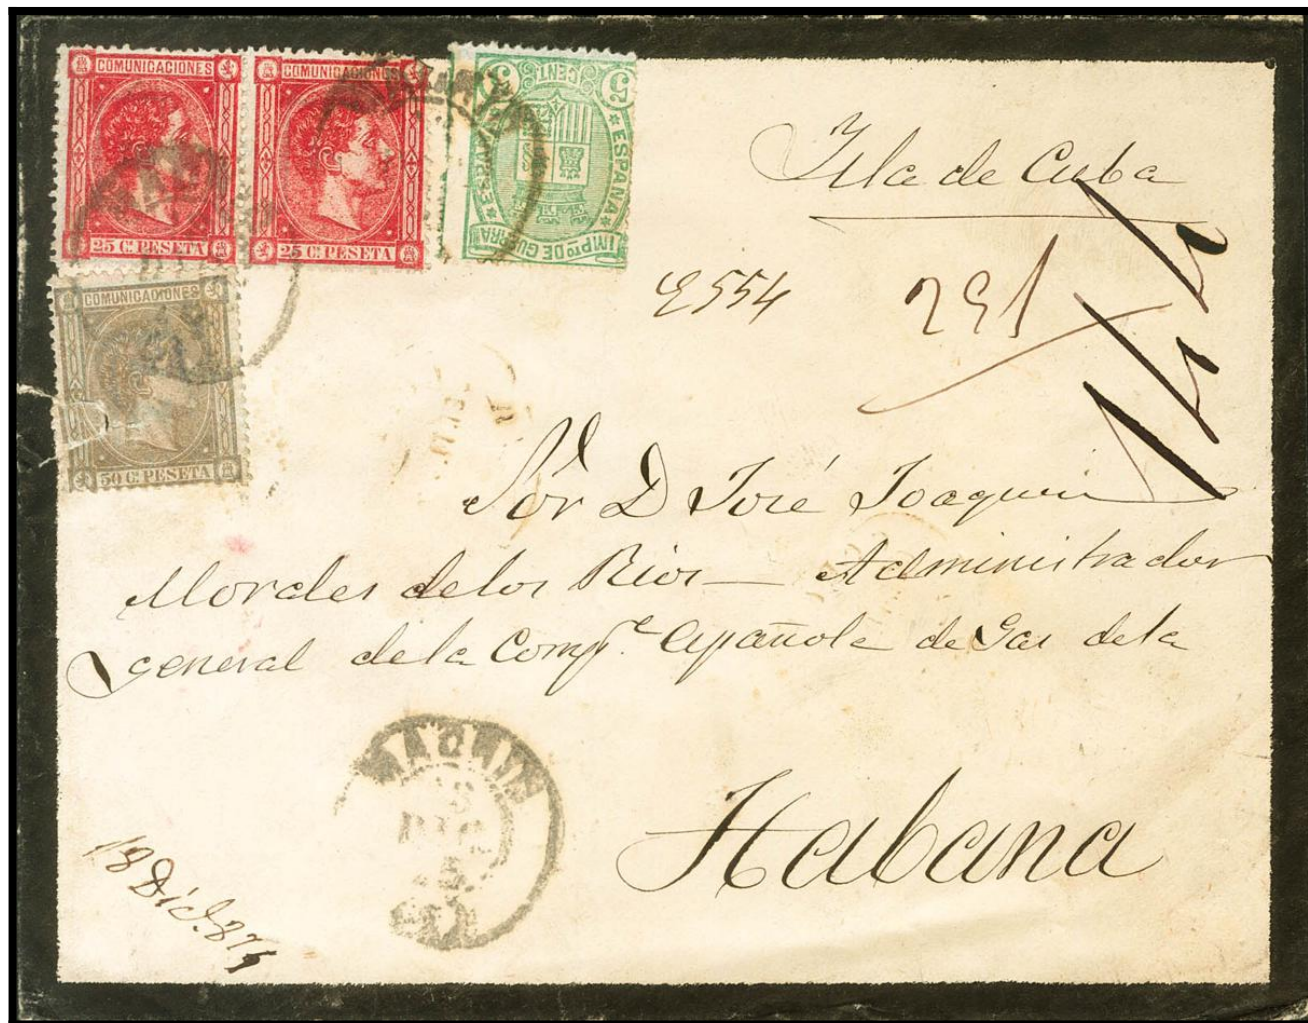 COMUNICACIONES
25 C. PESETA
COMUNICACIONES
25 C. PESETA
5 CENT. 5
ESPAÑA
IMPTO DE GUERRA
COMUNICACIONES
50 C. PESETA
Isla de Cuba
291
Sor D José Joaquin
Morales de los Rios — Administrador
general de la Compª Española de Gas de la
Habana
MADRID
18
DIC
75
18 Dic. 875